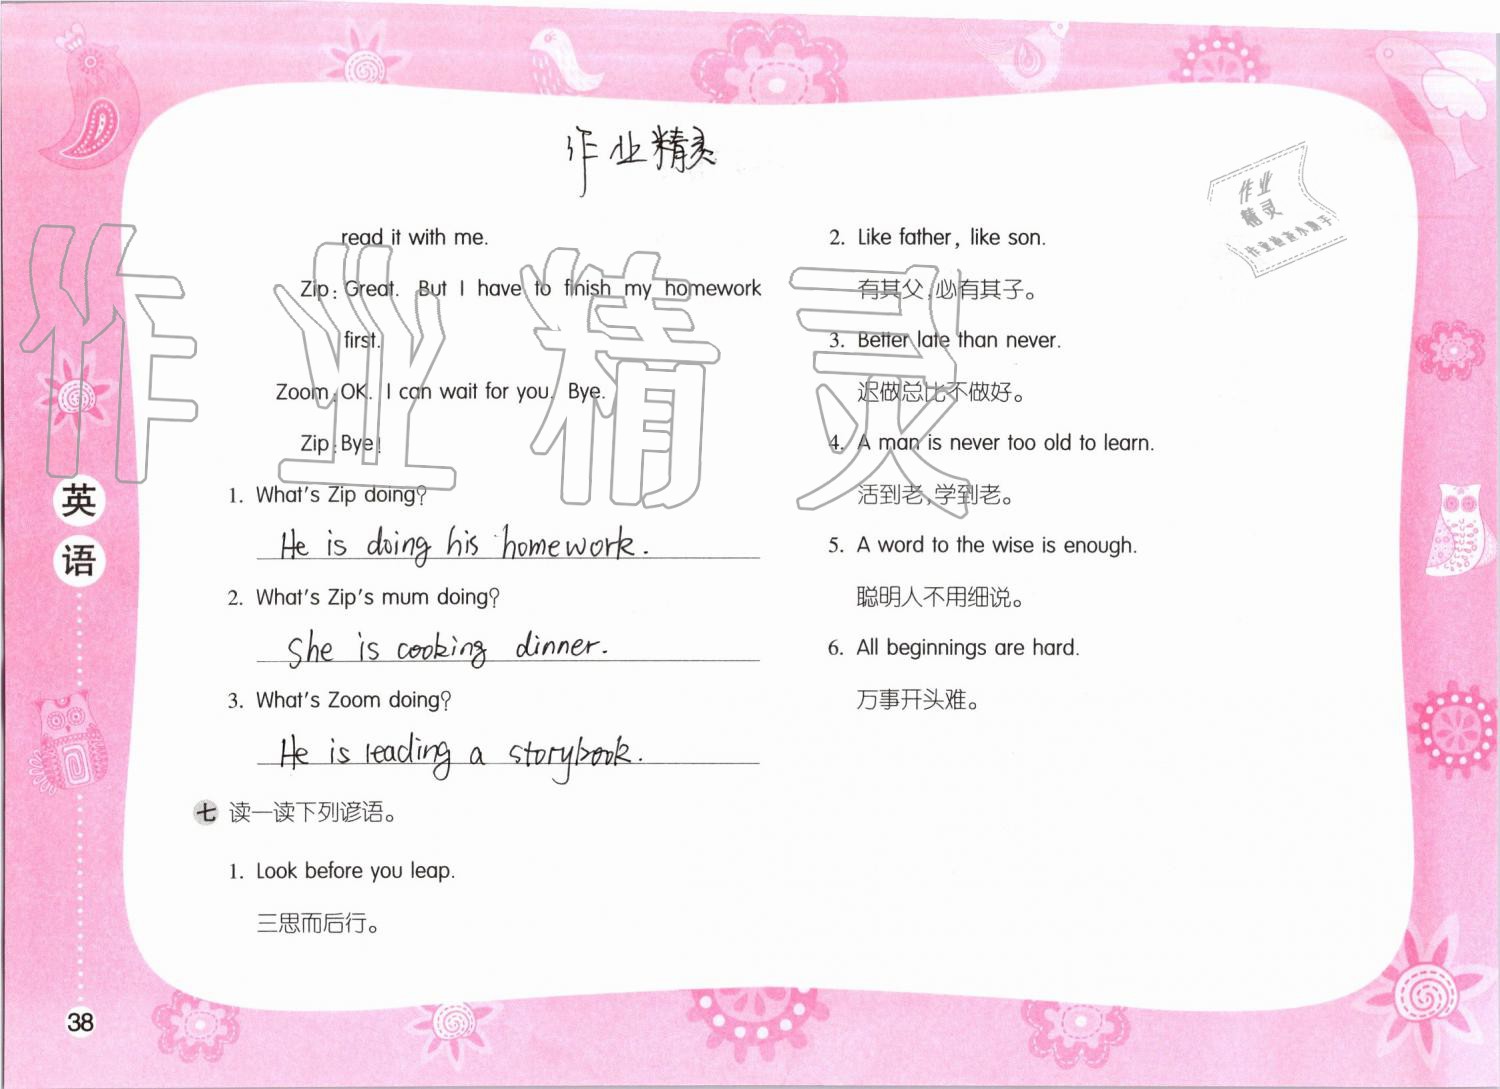 作业精灵
作业
精灵
作业检查小助手
作业精灵
read it with me.
Zip: Great. But I have to finish my homework
first.
Zoom: OK. I can wait for you. Bye.
Zip: Bye!
1. What's Zip doing?
He is doing his homework.
2. What's Zip's mum doing?
She is cooking dinner.
3. What's Zoom doing?
He is reading a storybook.
七 读一读下列谚语。
1. Look before you leap.
三思而后行。
2. Like father, like son.
有其父,必有其子。
3. Better late than never.
迟做总比不做好。
4. A man is never too old to learn.
活到老,学到老。
5. A word to the wise is enough.
聪明人不用细说。
6. All beginnings are hard.
万事开头难。
英
语
38